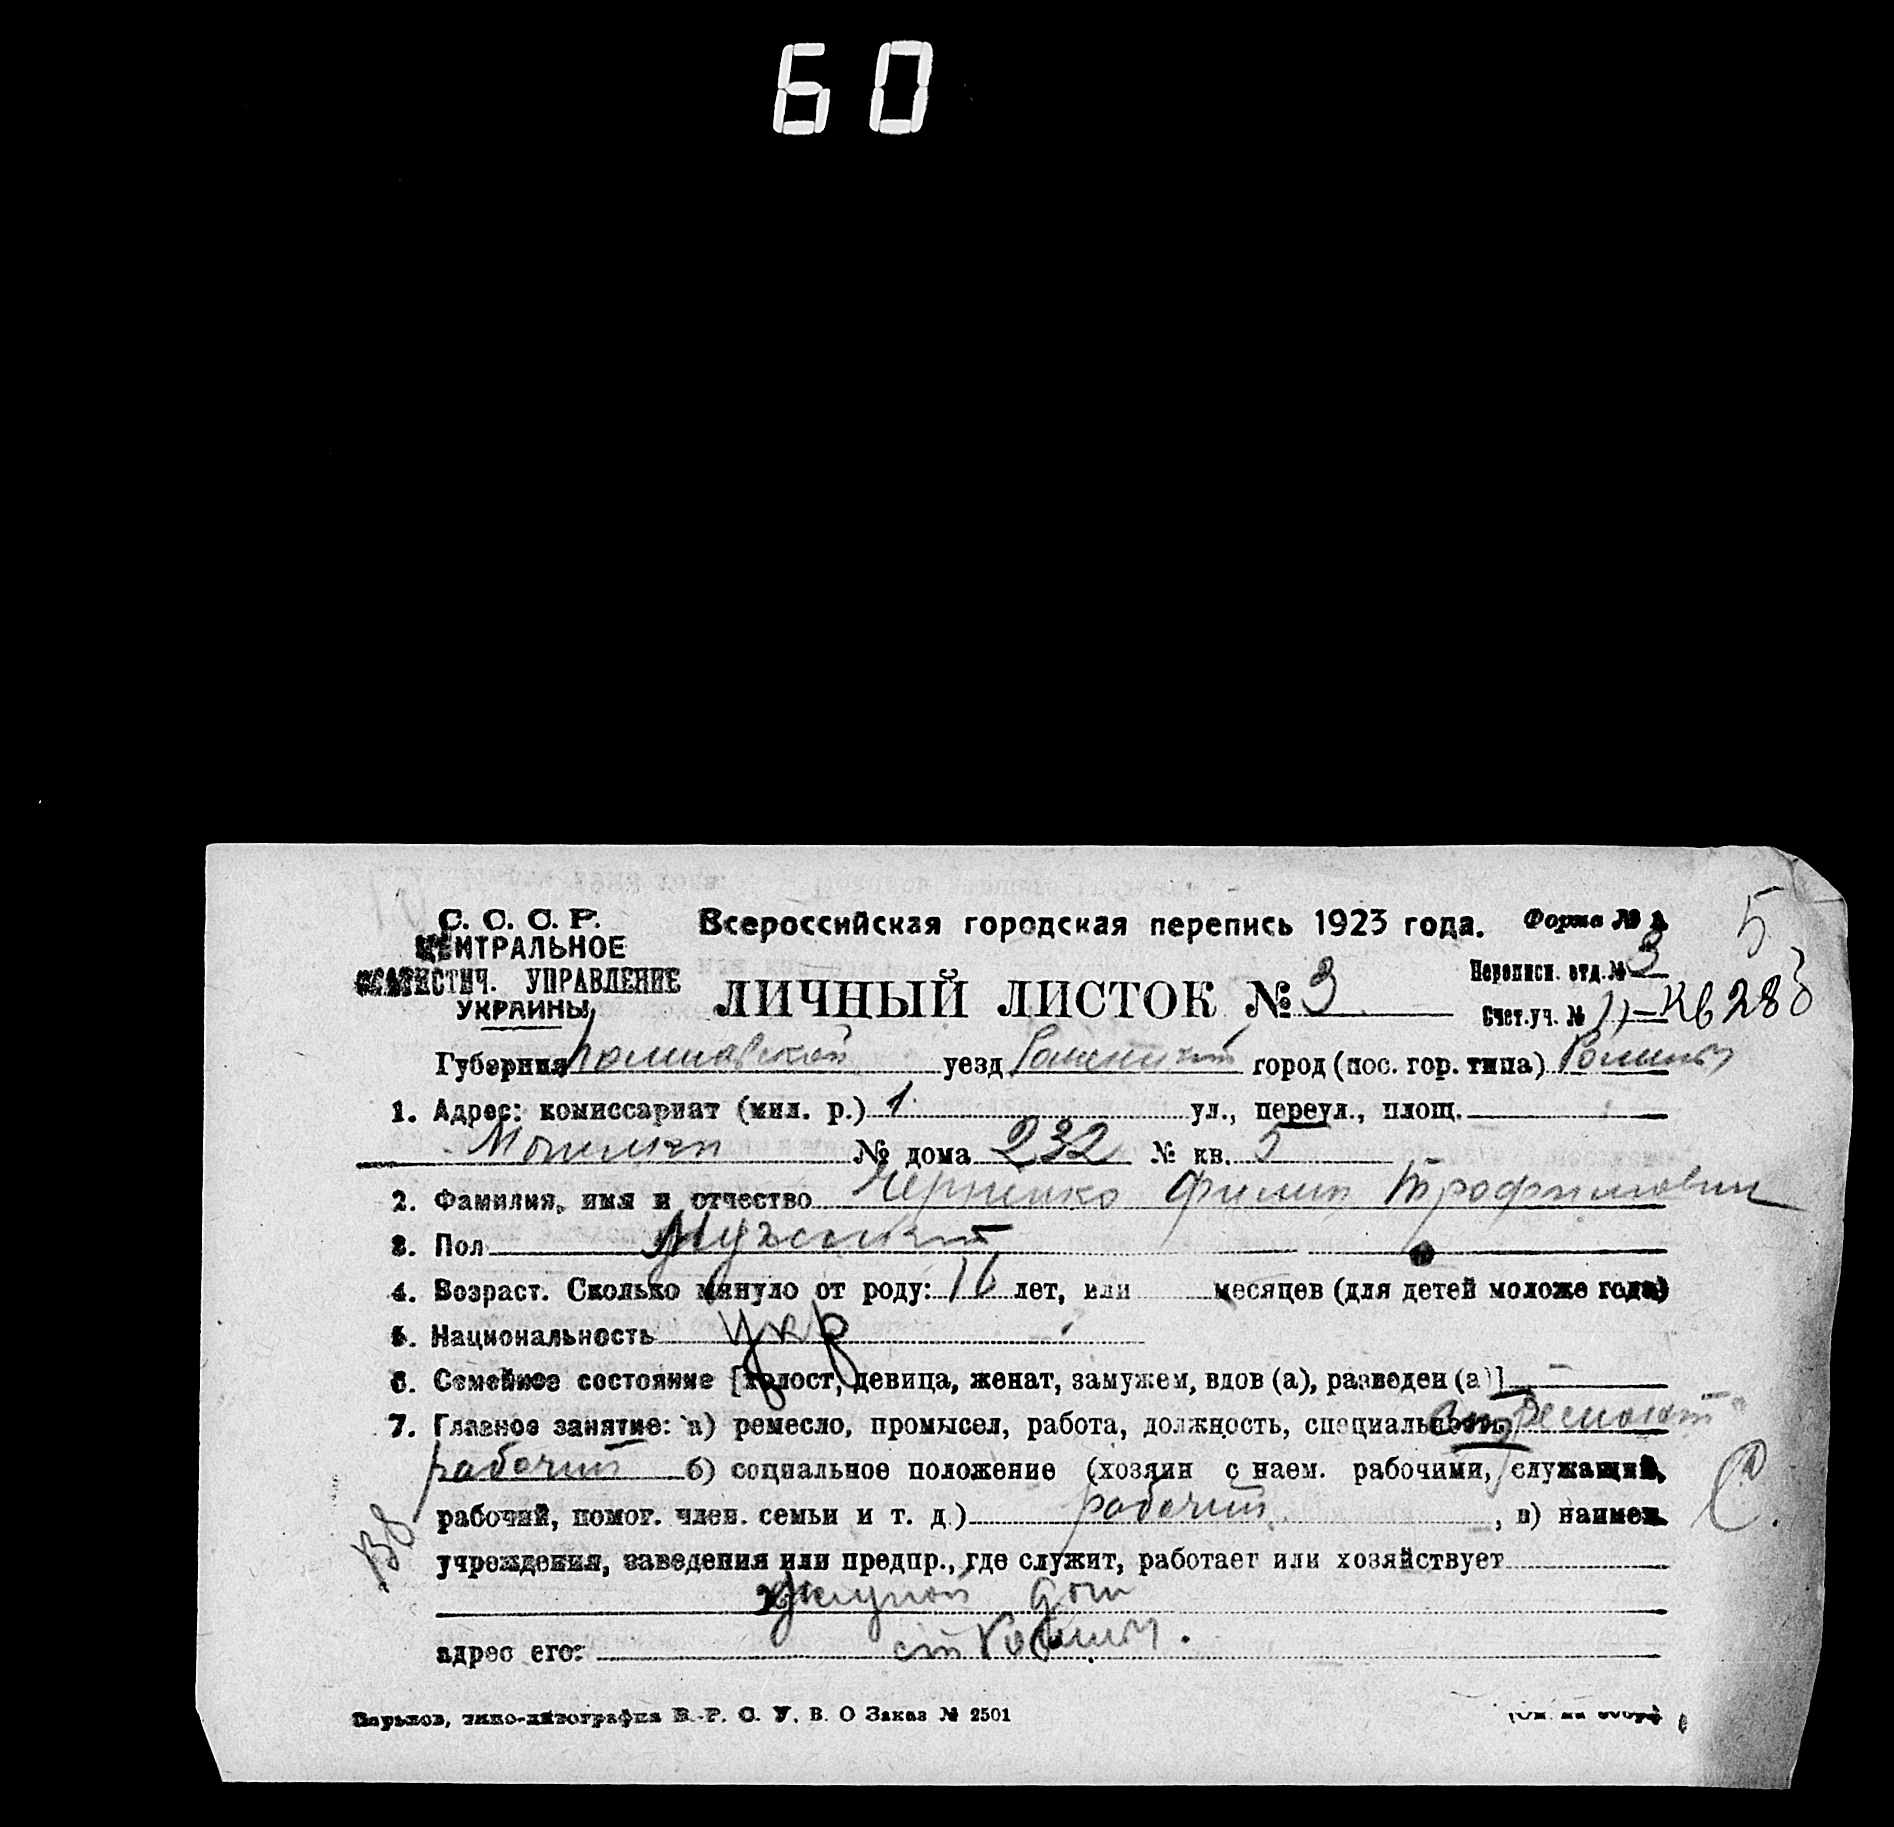 60
5
С. С. С. Р.
ЦЕНТРАЛЬНОЕ
СТАТИСТИЧ. УПРАВЛЕНИЕ
УКРАИНЫ
Всероссийская городская перепись 1923 года. Форма №
ЛИЧНЫЙ ЛИСТОК № 3
Переписн. отд. № 3
Счет. уч. № 11-Кв 283
Губерния Полтавской уезд Роменский город (пос. гор. типа) Ромны
1. Адрес: комиссариат (мил. р.) 1 ул., переул., площ.
№ дома 232 № кв. 5
2. Фамилия, имя и отчество Черненко Филип Трофимович
3. Пол Мужской
4. Возраст. Сколько минуло от роду: 16 лет, или месяцев (для детей моложе года)
5. Национальность Укр
6. Семейное состояние [холост, девица, женат, замужем, вдов (а), разведен (а)]
7. Главное занятие: а) ремесло, промысел, работа, должность, специальность
рабочий б) социальное положение (хозяин с наем. рабочими, служащий,
рабочий, помог. член. семьи и т. д.) рабочий, в) наимен.
учреждения, заведения или предпр., где служит, работает или хозяйствует
дом
адрес его: ст Ромны.
Харьков, типо-литография В. Р. С. У. В. О Заказ № 2501